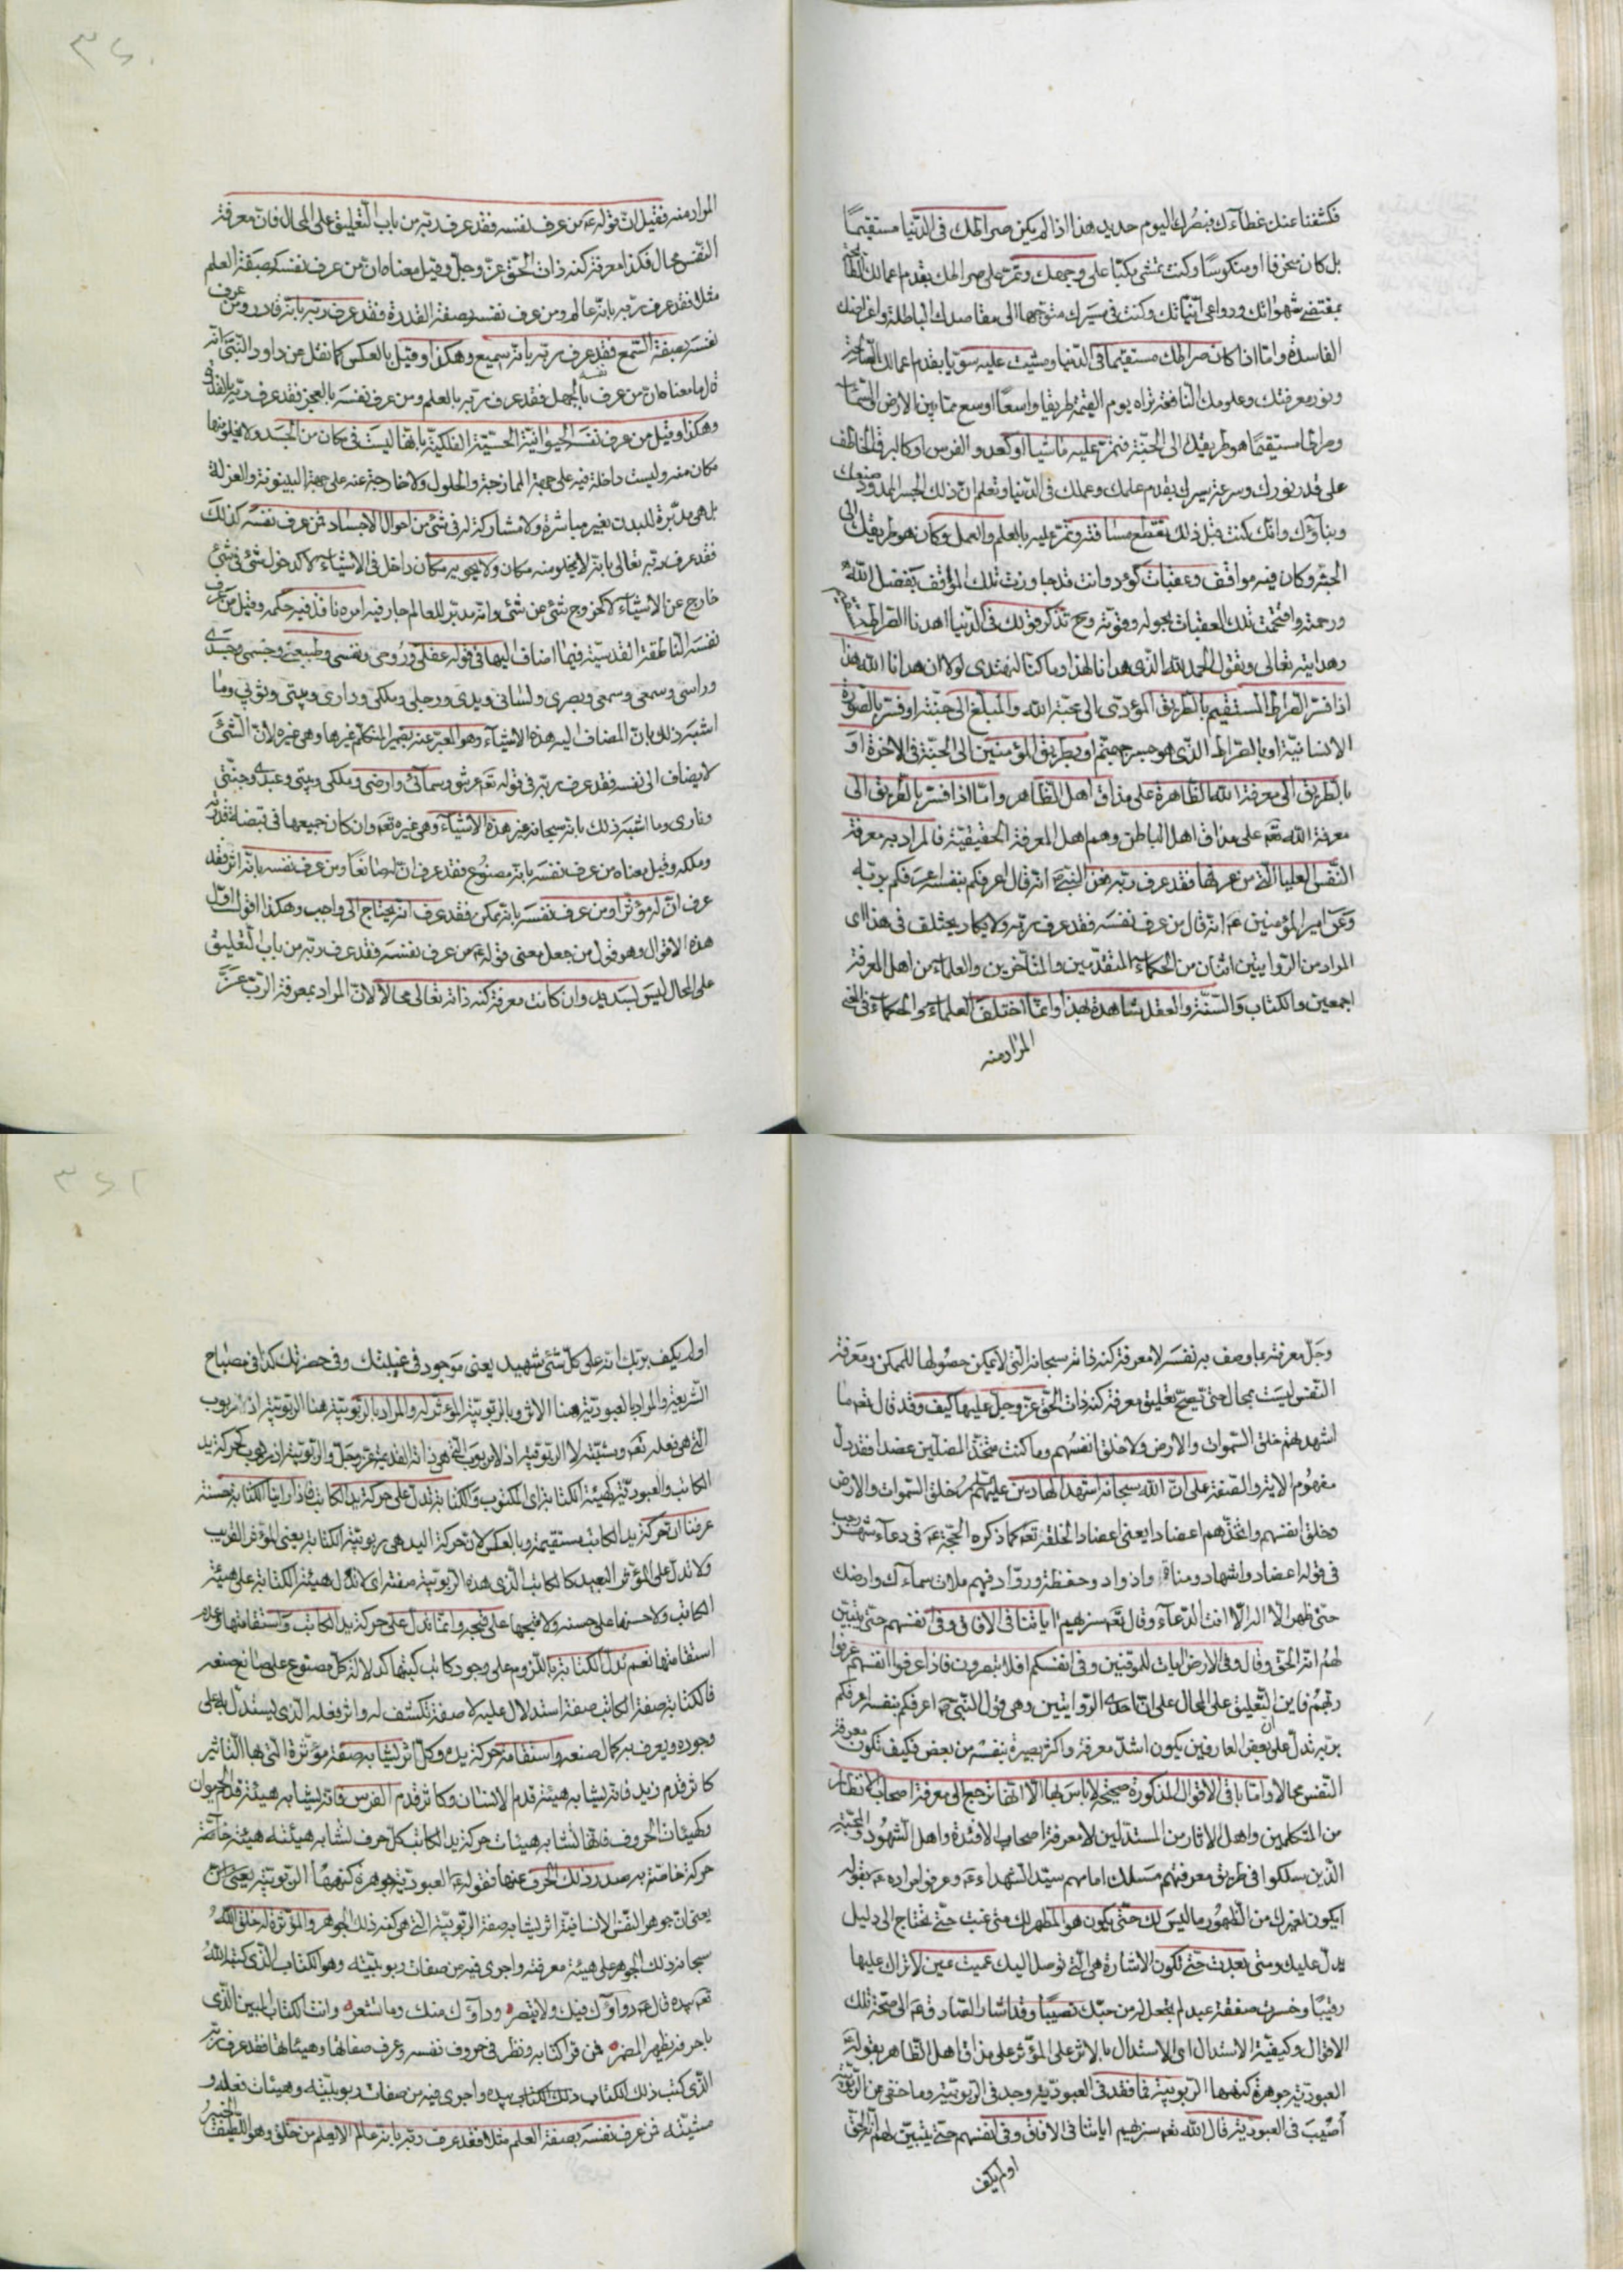 فكشفنا عنك غطاءك فبصرك اليوم حديد هذا اذا لم يكن صراطك فى الدّنيا مستقيمًا
بل كان منحرفا او منكوسًا وكنت تمشى مكبّا على وجهك وتمرّ على صراطك بقدم اعمالك القبيحة
بمقتضى شهواتك ودواعى انّياتك وكنت فى مسيرك متوجّها الى مقاصدك الباطلة واغراضك
الفاسدة وامّا اذا كان صراطك مستقيما فى الدّنيا ومشيت عليه سويّا بقدم اعمالك الصّالحة
ونور معرفتك وعلومك النّافعة تراه يوم القيمة طريقا واسعًا اوسع ممّا بين الارض والسّماء
وصراطا مستقيمًا هو طريقك الى الجنّة فتمرّ عليه ماشيا او كعدو الفرس او كالبرق الخاطف
على قدر نورك وسرعة سيرك بقدم علمك وعملك فى الدّنيا وتعلم انّ ذلك الجسر الممدود صنعك
وبناؤك وانّك كنت قبل ذلك تقطع مسافته وتمرّ عليه بالعلم والعمل وكان هو طريقك الى
الجنّة وكان فيه مواقف وعقبات كؤد وانت قد جاوزت تلك المواقف بفضل اللّه
ورحمته واقتحمت تلك العقبات بحوله وقوّته وح تذكر قولك فى الدّنيا اهدنا الصّراط المستقيم
وهدايته تعالى وتقول الحمد للّه الّذى هدانا لهذا وما كنّا لنهتدى لولا ان هدانا اللّه هذا
اذا فسّر الصّراط المستقيم بالطّريق المؤدّى الى محبّة اللّه والمبلّغ الى جنّته او فسّر بالصّورة
الانسانيّة او بالصّراط الّذى هو جسر جهنّم او بطريق المؤمنين الى الجنّة فى الاخرة او
بالطّريق الى معرفة اللّه الظّاهرة على مذاق اهل الظّاهر وامّا اذا فسّر بالطّريق الى
معرفة اللّه تعَ على مذاق اهل الباطن وهم اهل المعرفة الحقيقيّة فالمراد به معرفة
النّفس العليا الّتى من عرفها فقد عرف ربّه فعن النّبىّ انّه قال اعرفكم بنفسه اعرفكم بربّه
وعن امير المؤمنين عَ انّه قال من عرف نفسه فقد عرف ربّه ولا يكاد يختلف فى هذا اى
المراد من الرّوايتين اثنان من الحكماء المتقدّمين والمتأخّرين والعلماء من اهل المعرفة
اجمعين والكتاب والسّنّة والعقل شاهدة بهذا وانّما اختلف العلماء والحكماء فى المعنى
المراد منه
المراد منه فقيل انّ قوله عَ من عرف نفسه فقد عرف ربّه من باب التّعليق على المحال فانّ معرفة
النّفس محال فكذا معرفة كنه ذات الحقّ عزّ وجلّ وقيل معناه انّ من عرف نفسه بصفة العلم
مثلا فقد عرف ربّه بانّه عالم ومن عرف نفسه بصفة القدرة فقد عرف ربّه بانّه قادر ومن عرف
نفسه بصفة السّمع فقد عرف ربّه بانّه سميع وهكذا وقيل بالعكس كما نقل عن داود النّبىّ انّه
قال ما معناه انّ من عرف نفسه بالجهل فقد عرف ربّه بالعلم ومن عرف نفسه بالعجز فقد عرف ربّه بالقدرة
وهكذا وقيل من عرف نفسه الحيوانيّة الحسّيّة الفلكيّة بانّها ليست فى مكان من الجسد ولا يخلو منها
مكان منه وليست داخلة فيه على جهة الممازجة والحلول ولا خارجة عنه على جهة البينونة والعزلة
بل هى مدبّرة للبدن بغير مباشرة ولا مشاركة له فى شئ من احوال الاجساد فمن عرف نفسه كذلك
فقد عرف ربّه تعالى بانّه لا يخلو منه مكان ولا يحويه مكان داخل فى الاشياء لا كدخول شئ فى شئ
خارج عن الاشياء لا كخروج شئ عن شئ وانّه مدبّر للعالم جار فيه امره نافذ فيه حكمه وقيل من عرف
نفسه النّاطقة القدسيّة فيما اضاف اليها فى قوله عقلى وروحى ونفسى وطبيعتى وجسمى وجسدى
وراسى وسمعى وبصرى ولسانى ويدى ورجلى وملكى ودارى وبيتى وثوبى وما
اشبه ذلك بانّ المضاف اليه هذه الاشياء وهو المعبّر عنه بضمير المتكلّم غيرها وهى غيره لانّ الشّئ
لا يضاف الى نفسه فقد عرف ربّه فى قوله تعَ عرشى وسمائى وارضى وملكى وبيتى وعبدى وجنّتى
ونارى وما اشبه ذلك بانّه سبحانه غير هذه الاشياء وهى غيره تعَ وان كان جميعها فى قبضة قدرته
وملكه وقيل معناه من عرف نفسه بانّه مصنوع فقد عرف انّ له صانعًا ومن عرف نفسه بانّه اثر فقد
عرف انّ له مؤثّرا ومن عرف نفسه بانّه ممكن فقد عرف انّه يحتاج الى واجب وهكذا اقول اوّل
هذه الاقوال وهو قول من جعل معنى قوله عَ من عرف نفسه فقد عرف ربّه من باب التّعليق
على المحال ليس بسديد وان كانت معرفة كنه ذاته تعالى محالا لانّ المراد بمعرفة الربّ عزّ
وجلّ معرفته بما وصف به نفسه لا معرفة كنه ذاته سبحانه الّتى لا يمكن حصولها للممكن ومعرفة
النّفس ليست بمحال حتى تصحّ تعليق معرفة كنه ذات الحقّ عزّ وجلّ عليها كيف وقد قال تعَ ما
اشهدتهم خلق السّموات والارض ولا خلق انفسهم وما كنت متّخذ المضلّين عضدا فقد دلّ
مفهوم الاية والصّفة على انّ اللّه سبحانه اشهد الهادين عليهم السلم خلق السّموات والارض
وخلق انفسهم واتّخذهم اعضادا يعنى اعضادا لخلقه تعَ كما ذكره الحجّة عَ فى دعاء شهر رجب
فى قوله اعضاد واشهاد ومناة واذواد وحفظة وروّاد فبهم ملات سماءك وارضك
حتى ظهر ان لا اله الّا انت الدّعاء وقال تعَ سنريهم اياتنا فى الافاق وفى انفسهم حتى يتبيّن
لهم انّه الحقّ وقال وفى الارض ايات للموقنين وفى انفسكم افلا تبصرون فاذا عرفوا انفسهم عرفوا
ربّهم فاين التّعليق على المحال على انّ احدى الرّوايتين وهى قول النّبىّ ص اعرفكم بنفسه اعرفكم
بربّه تدلّ على ان بعض العارفين يكون اشدّ معرفة واكثر بصيرة بنفسه من بعض فكيف تكون معرفة
النّفس محالا وامّا باقى الاقوال المذكورة صحيحة لا باس بها الّا انّها ترجع الى معرفة اصحاب الانظار
من المتكلّمين واهل الاثار من المستدلّين لا معرفة اصحاب الافئدة واهل الشّهود والمحبّة
الّذين سلكوا فى طريق معرفتهم مسلك امامهم سيّد الشّهداء عَ وعرفوا مراده عَ بقوله
ايكون لغيرك من الظّهور ما ليس لك حتّى يكون هو المظهر لك متى غبت حتّى تحتاج الى دليل
يدلّ عليك ومتى بعدت حتّى تكون الاشارة هى الّتى توصل اليك عميت عين لا تراك عليها
رقيبًا وخسرت صفقة عبد لم تجعل له من حبّك نصيبًا وقد اشار الصّادق عَ الى صحّة تلك
الاقوال وكيفيّة الاستدلال اى الاستدلال بالاثر على المؤثّر على مذاق اهل الظّاهر بقوله عَ
العبوديّة جوهرة كنهها الرّبوبيّة فما فقد فى العبوديّة وجد فى الرّبوبيّة وما خفى عن الرّبوبيّة
اصيب فى العبوديّة قال اللّه تعَ سنريهم اياتنا فى الافاق وفى انفسهم حتّى يتبيّن لهم انّه الحقّ
اولم يكف
اولم يكف بربّك انّه على كلّ شئ شهيد يعنى موجود فى غيبتك وفى حضرتك كذا فى مصباح
الشّريعة والمراد بالعبوديّة هنا الاثر وبالرّبوبيّة المؤثّر له والمراد بالرّبوبيّة هنا الرّبوبيّة اذ مربوب
الّتى هى فعله تعَ ومشيّته لا الرّبوبيّة اذ لا مربوب الّتى هى ذاته القديمة عزّ وجلّ والرّبوبيّة اذ مربوب كحركة يد
الكاتب والعبوديّة كهيئة الكتابة اى المكتوب والكتابة تدلّ على حركة يد الكاتب فاذا راينا الكتابة حسنة
عرفنا ان حركة يد الكاتب مستقيمة وبالعكس لان حركة اليد هى ربوبيّة الكتابة يعنى المؤثّر القريب
ولا تدلّ على المؤثّر البعيد كالكاتب الّذى هذه الرّبوبيّة صفته اى لا تدلّ هيئة الكتابة على هيئة
الكاتب ولا حسنها على حسنه ولا قبحها على قبحه وانّما تدلّ على حركة يد الكاتب واستقامتها وعدم
استقامتها نعم تدلّ الكتابة باللّزوم على وجود كاتب كتبها كدلالة كلّ مصنوع على صانع صنعه
فالكتابة صفة الكاتب صفة استدلال عليه لا صفة تكشف له واثر فعله الّذى يستدلّ به على
وجوده ويعرف به كمال صنعه واستقامة حركة يده وكلّ اثر يشابه صفة مؤثّره الّتى بها التّاثير
كاثر قدم زيد فانّه يشابه هيئة قدم الانسان وكاثر قدم الفرس فانّه يشابه هيئة قدم الحيوان
وكهيئات الحروف فانّها تشابه هيئات حركة يد الكاتب كلّ حرف تشابه هيئته هيئة خاصّة
حركة خاصّة به صدر ذلك الحرف عنها فقوله عَ العبوديّة جوهرة كنهها الرّبوبيّة يعنى من
يعنى انّ جوهر النّفس الانسانيّة اثر يشابه صفة الرّبوبيّة الّتى هى كنه ذلك الجوهر والمؤثّرة له خلق اللّه
سبحانه ذلك الجوهر على هيئة معرفته واجرى فيه من صفات ربوبيّته وهو الكتاب الّذى كتبه اللّه
تعَ بيده قال عَ دواؤك فيك ولا تبصر وداؤك منك وما تشعر وانت الكتاب المبين الّذى
باحرفه يظهر المضمر فمن قرأ كتابه ونظر فى حروف نفسه وعرف صفاتها وهيئاتها فقد عرف ربّه
الّذى كتب ذلك الكتاب ذلك الكتاب بيده واجرى فيه من صفات ربوبيّته وهيئات فعله و
مشيّته فمن عرف نفسه بصفة العلم مثلا فقد عرف ربّه بانّه عالم الا يعلم من خلق وهو اللّطيف الخبير